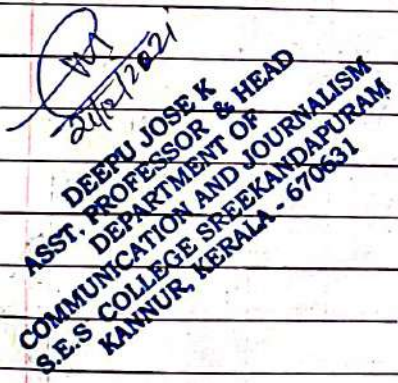 24/12/2021
DEEPU JOSE K
ASST. PROFESSOR & HEAD
DEPARTMENT OF
COMMUNICATION AND JOURNALISM
S.E.S COLLEGE SREEKANDAPURAM
KANNUR, KERALA - 670631